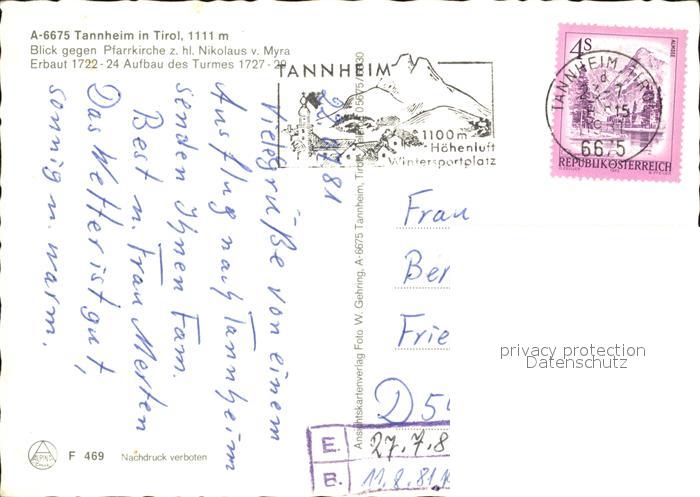 A-6675 Tannheim in Tirol, 1111 m
Blick gegen Pfarrkirche z. hl. Nikolaus v. Myra
Erbaut 1722-24 Aufbau des Turmes 1727-29
TANNHEIM
1100m
Höhenluft
Wintersportplatz
4S
ALMSEE
TANNHEIM
6675
REPUBLIK ÖSTERREICH
1981
Viele grüße von einem
Ausflug nach Tannheim
senden Ihnen Fam.
Best u. Frau Merten
Das Wetter ist gut,
sonnig u. warm.
Ansichtskartenverlag Foto W. Gehring, A-6675 Tannheim, Tirol
Frau
Ber
Frie
D 54
E. 27.7.8
B. 11.8.81
privacy protection
Datenschutz
F 469 Nachdruck verboten